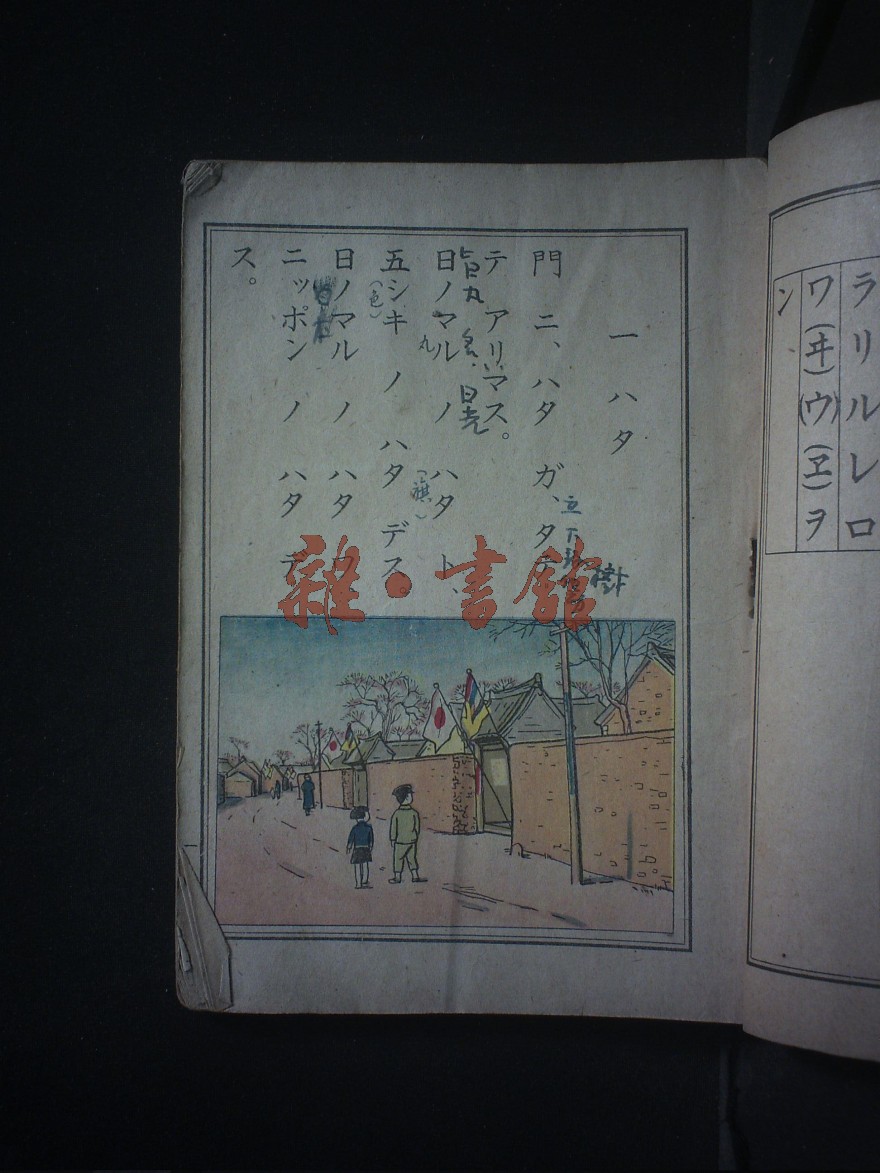 ラリルレロ
ワ(ヰ)ウ(ヱ)ヲ
(ウ)
ン
一 ハタ
門 ニ、ハタ ガ、タテ
テ アリマス。
日ノマル ノ ハタ ト、
五シキ ノ ハタ デス。
日ノマル ノ ハタ ワ
ニッポン ノ ハタ デ
ス。
立
樹
日丸
丸
(旗)
(色)
雜·書館